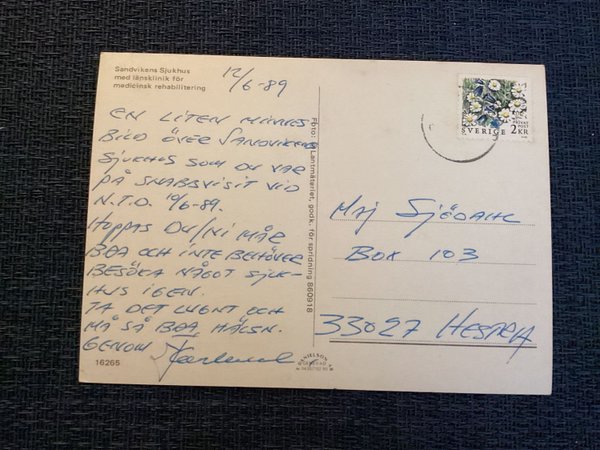 Sandvikens Sjukhus
med länsklinik för
medicinsk rehabilitering
12/6-89
EN LITEN MINNES
BILD ÖVER SANDVIKENS
SJUKHUS SOM DU VAR
PÅ SNABBVISIT VID
N.T.O. 10/6-89.
HOPPAS DU/NI MÅR
BRA OCH INTE BEHÖVER
BESÖKA NÅGOT SJUK-
HUS IGEN.
TA DET LUGNT OCH
MÅ SÅ BRA. HÄLSN.
GENOM
16265
Foto: Lantmäteriet, godk. för spridning 860918
PRIVAT
POST
SVERIGE 2KR
MAJ SJÖDAHL
BOX 103
33027 HESTRA
DANIELSON